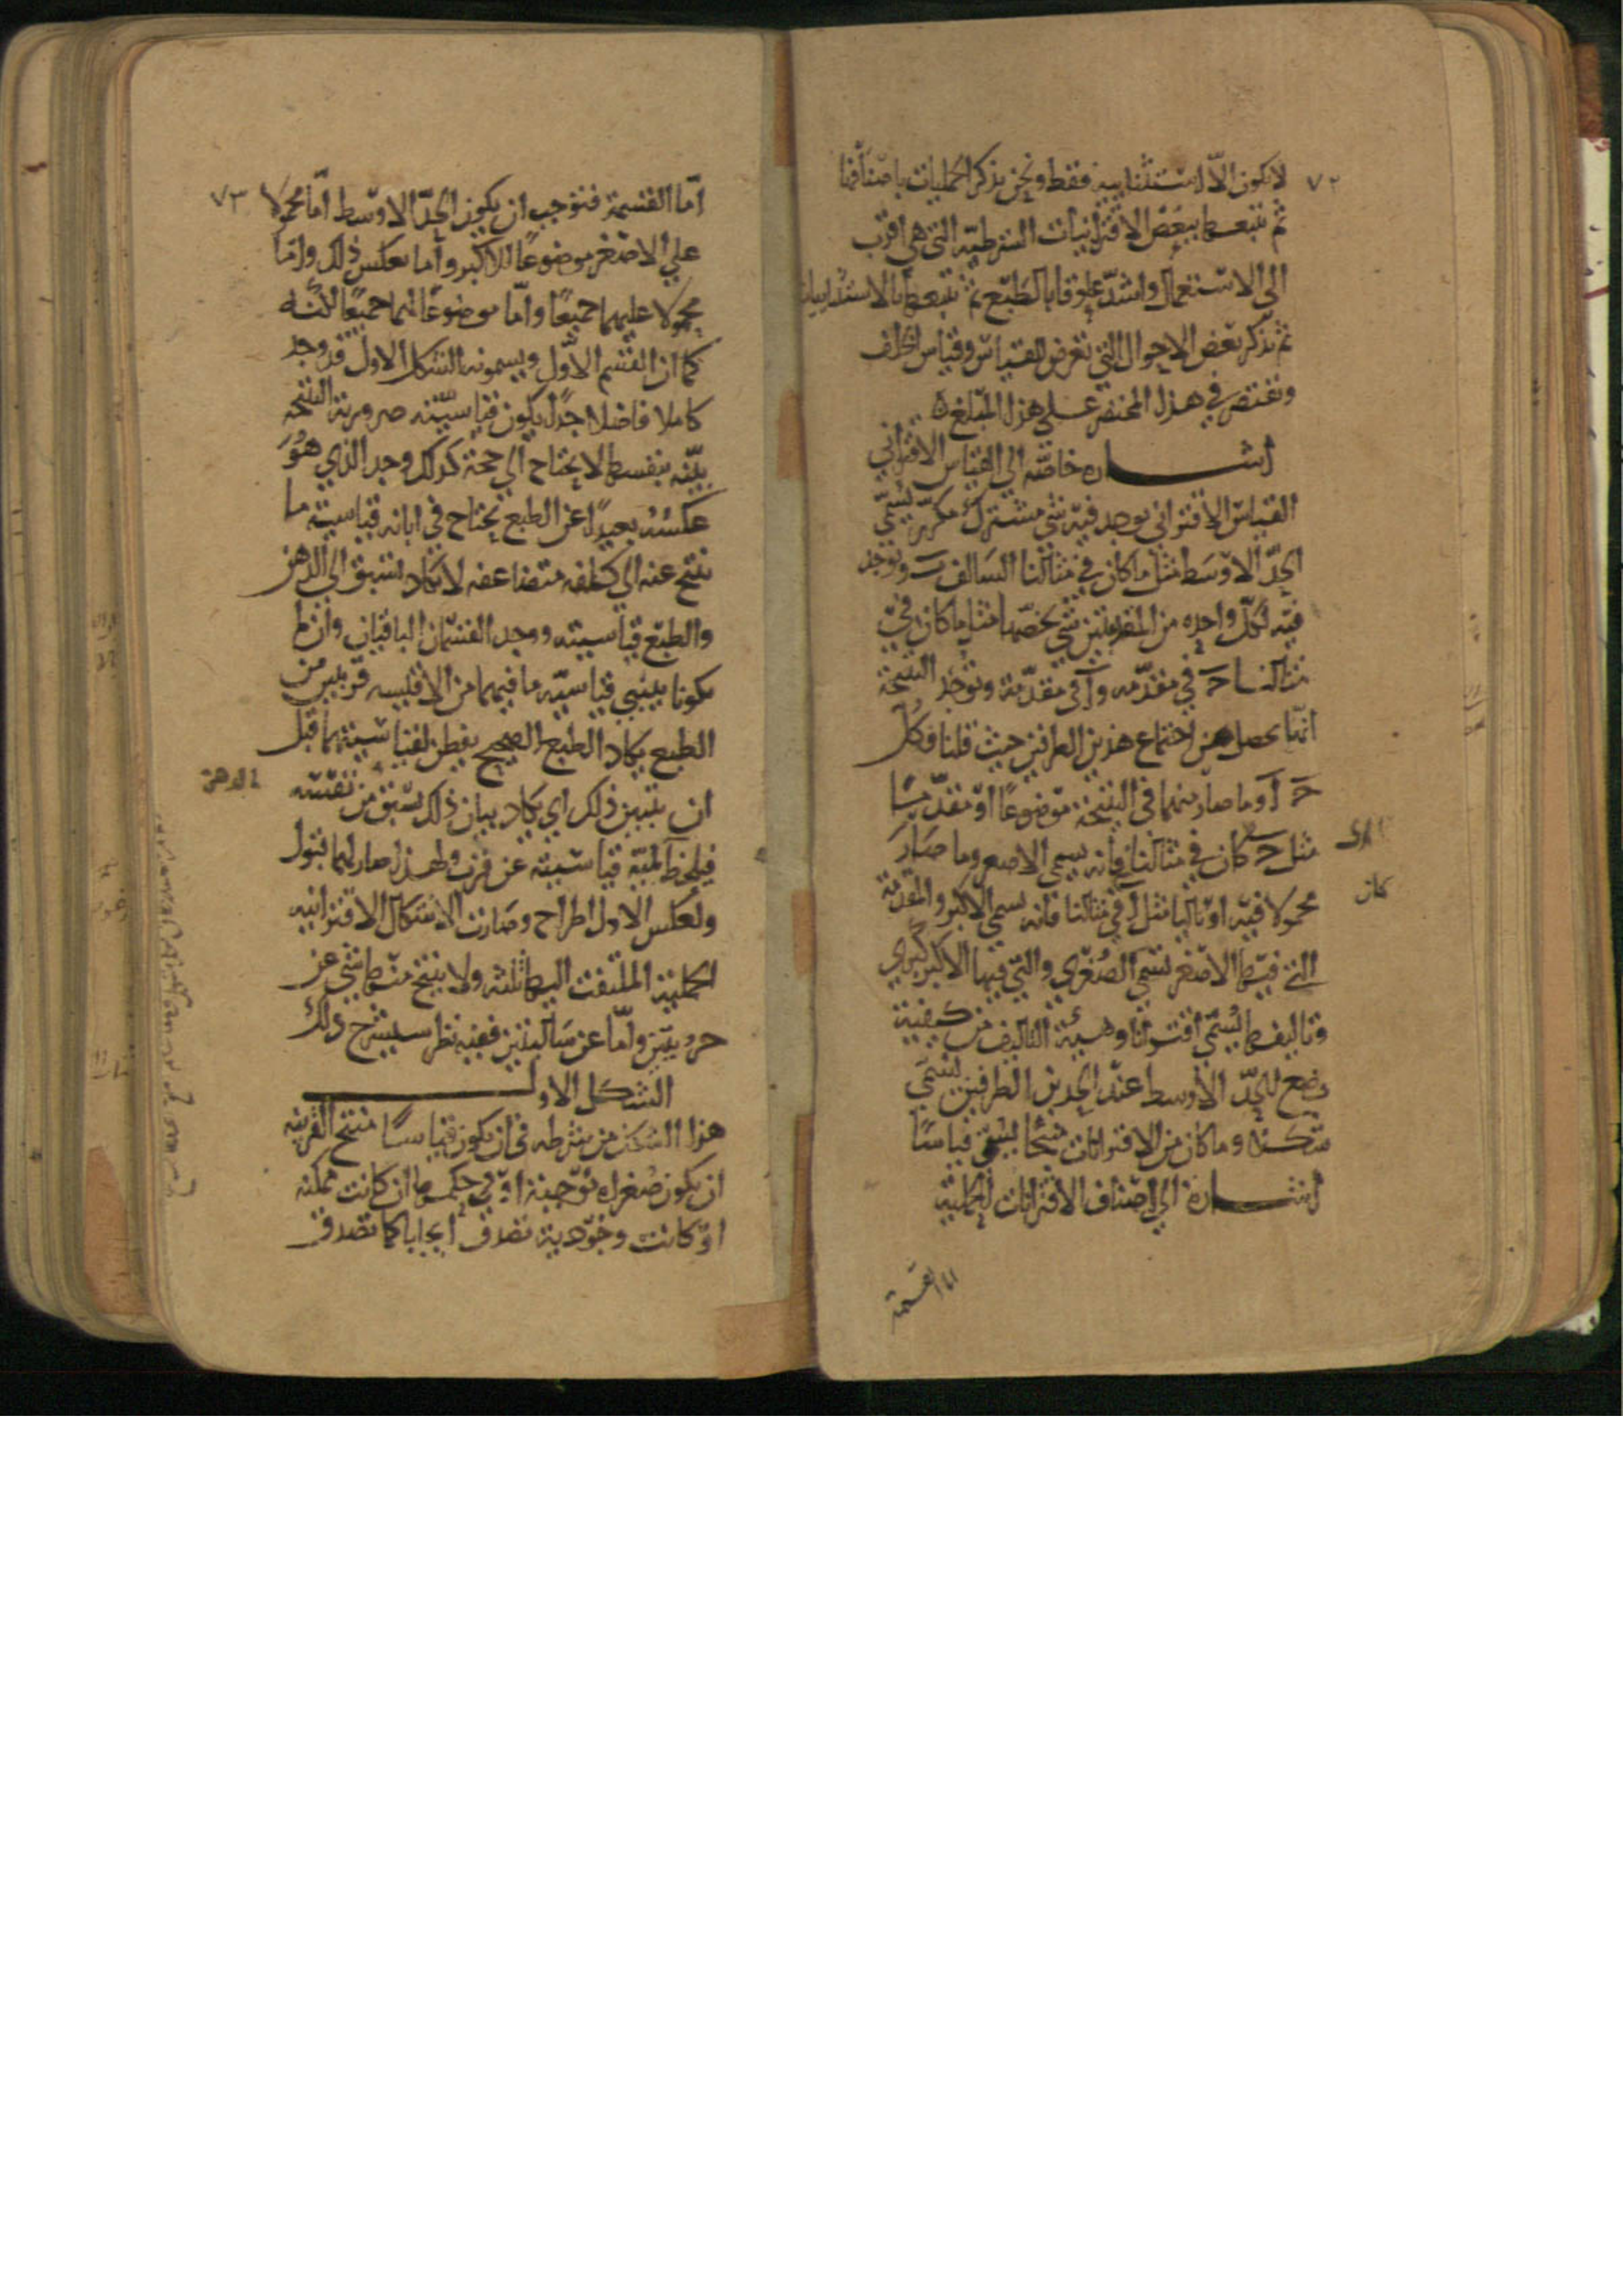 ٧٢
لا تكون الا استثنائية فقط ونحن نذكر الحمليات باصنافها
ثم نتبعها ببعض الاقترانيات الشرطية التي هي اقرب
الى الاستعمال واشد علوقا بالطبع ثم نتبعها بالاستثنائيات
ثم نذكر بعض الاحوال التي تعرض للقياس وقياس الخلف
ونقتصر في هذا المختصر على هذا المبلغ ٥
اشــــارة خاصة الى القياس الاقتراني
القياس الاقتراني يوجد فيه شي مشترك مكرر يسمى
الحدّ الاوسط مثل ما كان في مثالنا السالف ب ويوجد
فيه لكل واحده من المقدمتين شي يخصها مثل ما كان في
مثالنا ج في مقدمه و آ في مقدمة وتوجد النتيجة
انما تحصل من اجتماع هذين الطرفين حيث قلنا فكل
ج آ وما صار منهما في النتيجة موضوعًا او مقدمًا
مثل ج كان في مثالنا فانه يسمى الاصغر وما صار
كان
محمولا فيه او تاليا مثل آ في مثالنا فانه يسمى الاكبر والمقدمة
التي فيها الاصغر تسمى الصغرى والتي فيها الاكبر كبرى
وتاليفهما يسمى اقترانا وهيئة التاليف من كيفية
وضع الحدّ الاوسط عند الحدين الطرفين تسمى
شكلا وما كان من الاقترانات منتجا يسمى قياسًا
اشــــارة الى اصناف الاقترانات الحملية
اما القسمة
٧٣
امّا القسمة فتوجب ان يكون الحدّ الاوسط امّا محمولا
على الاصغر موضوعًا للاكبر وأما بعكس ذلك واما
محمولا عليهما جميعًا وامّا موضوعًا لهما جميعًا لكنه
كما ان القسم الاوّل ويسمونه الشكل الاول قد وجد
كاملا فاضلا جدًا بكون قياسيّته ضرورية النتيجة
بيّنه بنفسها لا يحتاج الى حجة كذلك وجد الذي هُوَ
عكسُهُ بعيدًا عن الطبع يحتاج في ابانه قياسيته ما
ينتج عنه الى كلفه متضاعفه لا يكاد تسبق الى الذهن
والطبع قياسيته ووجد القسمان الباقيان وان لم
يكونا بينيي قياسيّه ما فيهما من الاقيسه قريبين من
الطبع يكاد الطبع الصحيح يفطن لقياسيتهما قبل
ان يتبين ذلك اي يكاد بيان ذلك يسبق من نفسه
الى الذهن
فيلحظ لميّه قياسيته عن قرب ولهذا صار لهما قبول
ولعكس الاول اطراح وصارت الاشكال الاقترانيه
الحملية الملتفت اليها ثلثه ولا ينتج منها شي عن
جزءيتين وامّا عن سالبتين ففيه نظر سيشرح ذلك
الشكل الاول
هذا الشكل من شرطه في ان يكون قياسًا منتج القرينه
ان يكون صغراه موجبة او في حكمها ان كانت ممكنه
او كانت وجودية تصدق ايجابا كما تصدق